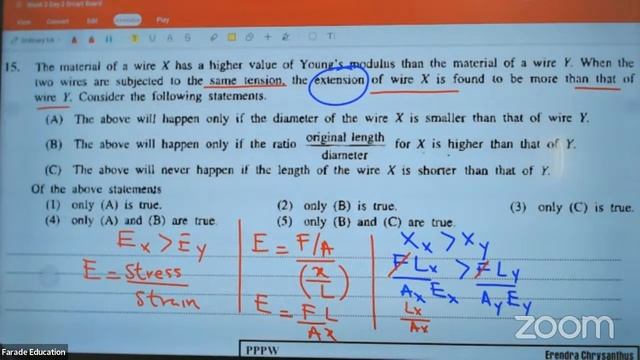 Week 2 Day 2 Smart Board
View
Convert
Edit
Annotate
Play
15. The material of a wire X has a higher value of Young's modulus than the material of a wire Y. When the
two wires are subjected to the same tension, the extension of wire X is found to be more than that of
wire Y. Consider the following statements.
(A) The above will happen only if the diameter of the wire X is smaller than that of wire Y.
(B) The above will happen only if the ratio original length / diameter for X is higher than that of Y.
(C) The above will never happen if the length of the wire X is shorter than that of Y.
Of the above statements
(1) only (A) is true. (2) only (B) is true. (3) only (C) is true.
(4) only (A) and (B) are true. (5) only (B) and (C) are true.
Ex > Ey
E = Stress / Strain
E = F/A / (x/L)
E = FL / Ax
Xx > Xy
FLx / AxEx > FLy / AyEy
Lx / Ax
zoom
Farade Education
PPPW
Erendra Chrysanthus